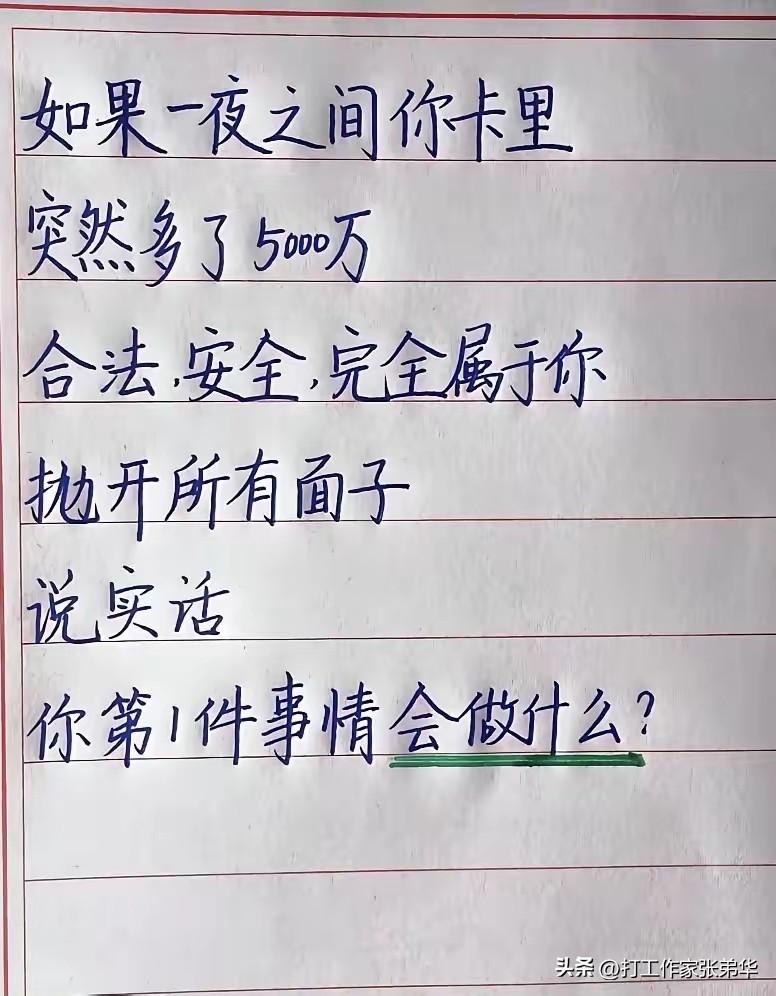 如果一夜之间你卡里
突然多了5000万
合法,安全,完全属于你
抛开所有面子
说实话
你第1件事情会做什么?
头条 @打工作家张弟华